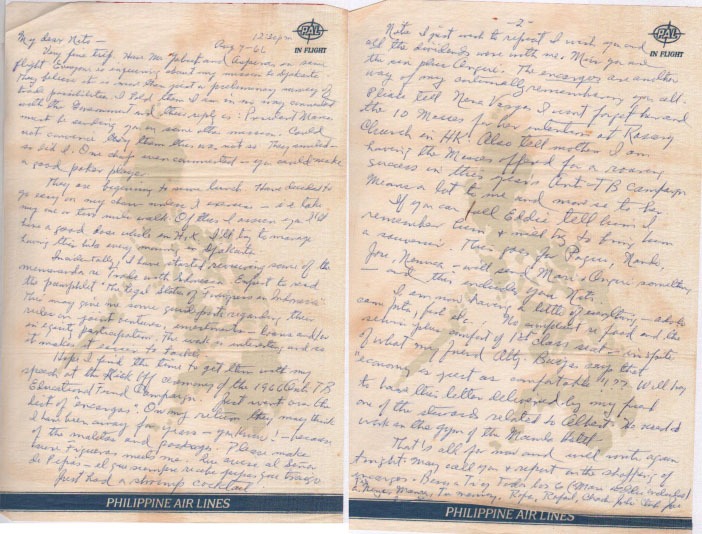 PAL
IN FLIGHT
12:30pm
Aug 9-66
My dear Nits —
Very fine trip. Have Mr. and on same
flight. Everyone is inquiring about my mission to Djakarta.
They believe it is more than just a preliminary survey of
trade possibilities. I told them I am in no way connected
with the Government and their reply is: President Marcos
must be sending you on some other mission. Could
not convince them there was not so. They smiled —
so did I. One chap even commented — you would make
a good poker player.
They are beginning to serve lunch. Have decided to
go easy on my chow unless I exercise — i.e. take
my one or two mile walk. Of this I assure you I'll
have a good dose while in H.K. I'll try to manage
having this like every morning in Djakarta.
Incidentally, I have started reviewing some of the
memoranda re Trade with Indonesia. Expect to read
the pamphlet "The Legal State of Foreigners in Indonesia".
This may give me some good points regarding their
rules on joint ventures, investments — loans and/or
in equity participation. The work is interesting and so
it makes it easier to tackle.
Hope I find the time to get thru with my
speech at the Kick Off ceremony of the 1966 Anti TB
Educational Fund Campaign. Just went over the
list of "encargos". On my return they may think
I have been away for years — you know! — because
of the maletas and packages. Please make
sure Figueras meets me. Que avise al Señor
de Pepes — el que siempre recibe
Just had a shrimp cocktail
PHILIPPINE AIR LINES
-2-
PAL
IN FLIGHT
Nits, I just wish to repeat I wish you and
all the dividends were with me. Mari you and
the six plus Angue. The encargos are another
way of my continually remembering you all.
Please tell Nena Vargas I won't forget her and
the 10 Masses for her intention at Rosary
Church in HK. Also tell mother I am
having the Masses offered for a roaring
success in this years Anti-TB Campaign
Means a lot to me and more so to her.
If you can call Eddie tell him I
remember him & will try to bring him
a souvenir. This goes for Paquu, Nando,
Jose, Menmen — will send Mari & Angue something
— and this includes you Nits.
I am now having a little of everything —
camote, fish etc. No complaint re food and the
service plus comfort of 1st class seat — in spite
of what my friend Atty. says that
"economy is just as comfortable"!?? Will try
to have this letter delivered by my friend
one of the stewards related to Albert. He used to
work in the gym of the Manila Hotel.
That's all for now and will write again
tonight. May call you & report on the shopping of
encargos. Besos a Ti y Todos los 6
PHILIPPINE AIR LINES